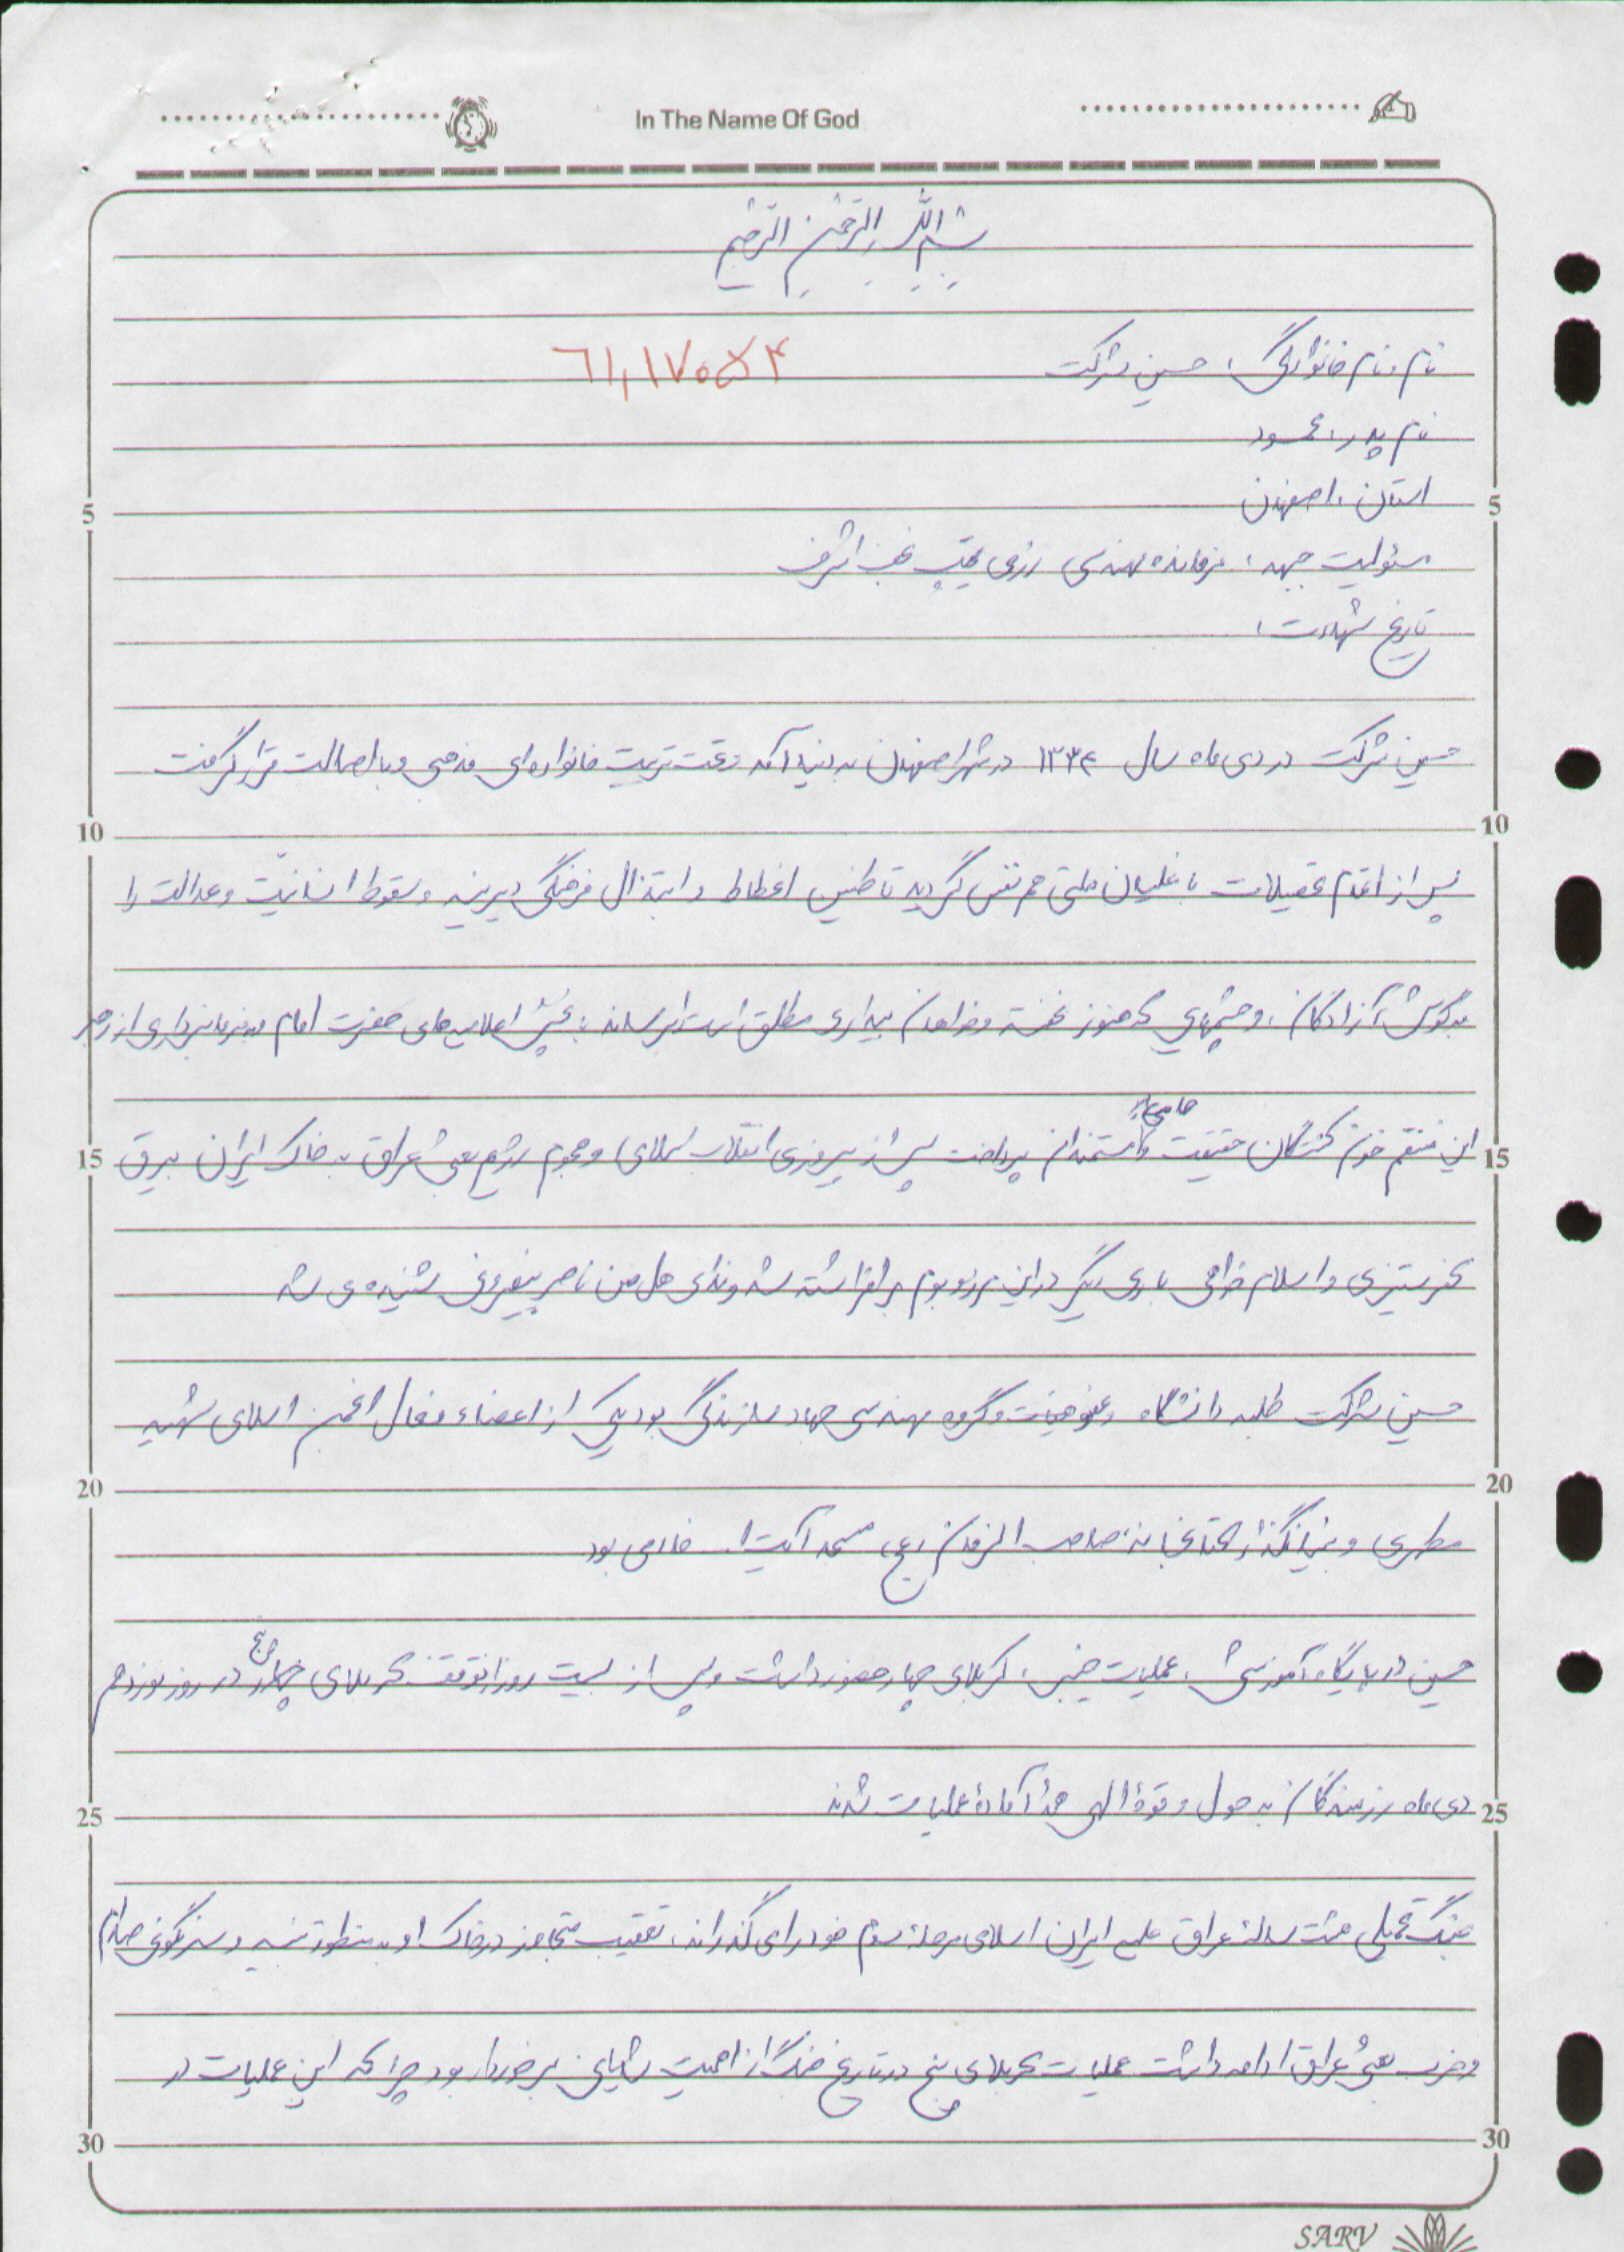 In The Name Of God
بسم الله الرحمن الرحیم
نام و نام خانوادگی : حسین شرکت
نام پدر : محمود
استان : اصفهان
5 5
مسئولیت جبهه : فرمانده مهندسی رزمی تیپ نجف اشرف
تاریخ شهادت :
حسین شرکت در دی ماه سال ۱۳۳۴ در شهر اصفهان به دنیا آمد و تحت تربیت خانواده ای مذهبی و با اصالت قرار گرفت
10 10
پس از اتمام تحصیلات با غلیان ملتی هم نفس گردید تا طنین انحطاط و ابتذال فرهنگی دیرینه و سقوط انسانیت و عدالت را
به گوش آزادگان و چشمهای که هنوز نخفته و خواهان بیداری مطلق است برساند با پخش اعلامیه های حضرت امام و فرمانبرداری از رهبر
حامی
15 این منتقم خون کشتگان حقیقت مستمندان پرداخت پس از پیروزی انقلاب اسلامی و هجوم رژیم بعث عراق به خاک ایران بیرق 15
کفر ستیزی و اسلام خواهی باری دیگر در این مرز و بوم برافراشته شد و ندای هل من ناصر ینصرنی شنیده می شد
حسین شرکت طلبه دانشگاه و عضو هیئت و گروه مهندسی جهاد سازندگی بود یکی از اعضاء فعال انجمن اسلامی شهید
20 20
مطهری و بنیانگذار کتابخانه صاحب الزمان (عج) مسجد آیت ا... خادمی بود
حسین در پایگاه آموزشی ، عملیات خیبر ، کربلای چهار حضور داشت و پس از بیست روز از توقف کربلای چهار در روز نوزدهم
25 دی ماه رزمندگان به حول و قوه الهی آماده عملیات شدند 25
جنگ تحمیلی هشت ساله عراق علیه ایران اسلامی مرحله سوم خود را می گذراند ، تعقیب متجاوز در خاک او به منظور تنبیه و سرنگونی صدام
و حزب بعث عراق ادامه داشت عملیات کربلای پنج در تاریخ جنگ از اهمیت شایانی برخوردار بود چرا که این عملیات در
30 30
SARV